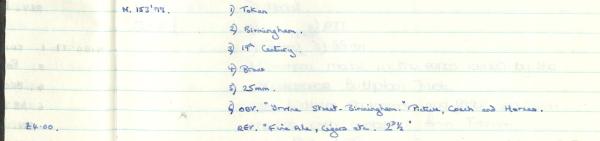 M. 153'77. 1) Token
2) Birmingham.
3) 19th Century.
4) Brass
5) 25mm.
6) OBV. "Irvine Street - Birmingham." Picture, Coach and Horses.
£4.00. REV. "Fine Ale, Cigars etc. 2D½"